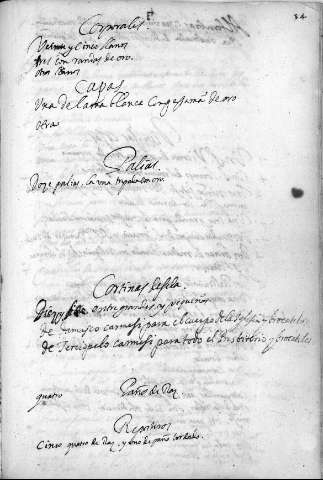 34
Corporales.
Veinte y cinco llanos
tres con randas de oro.
otros llanos
Capas
Una de lama blanca con de oro
otra
Palias.
Doze palias, la una
Cortinas de sila.
Diez y siete entre grandes, y pequeños
de Damasco carmesi para el cuerpo de la Iglesia y frontales
de Terciopelo carmesi para todo el Presbiterio y frontales
quatro Paños de Raz
Reposteros
Cinco, quatro de Raz, y uno de paño bordado.